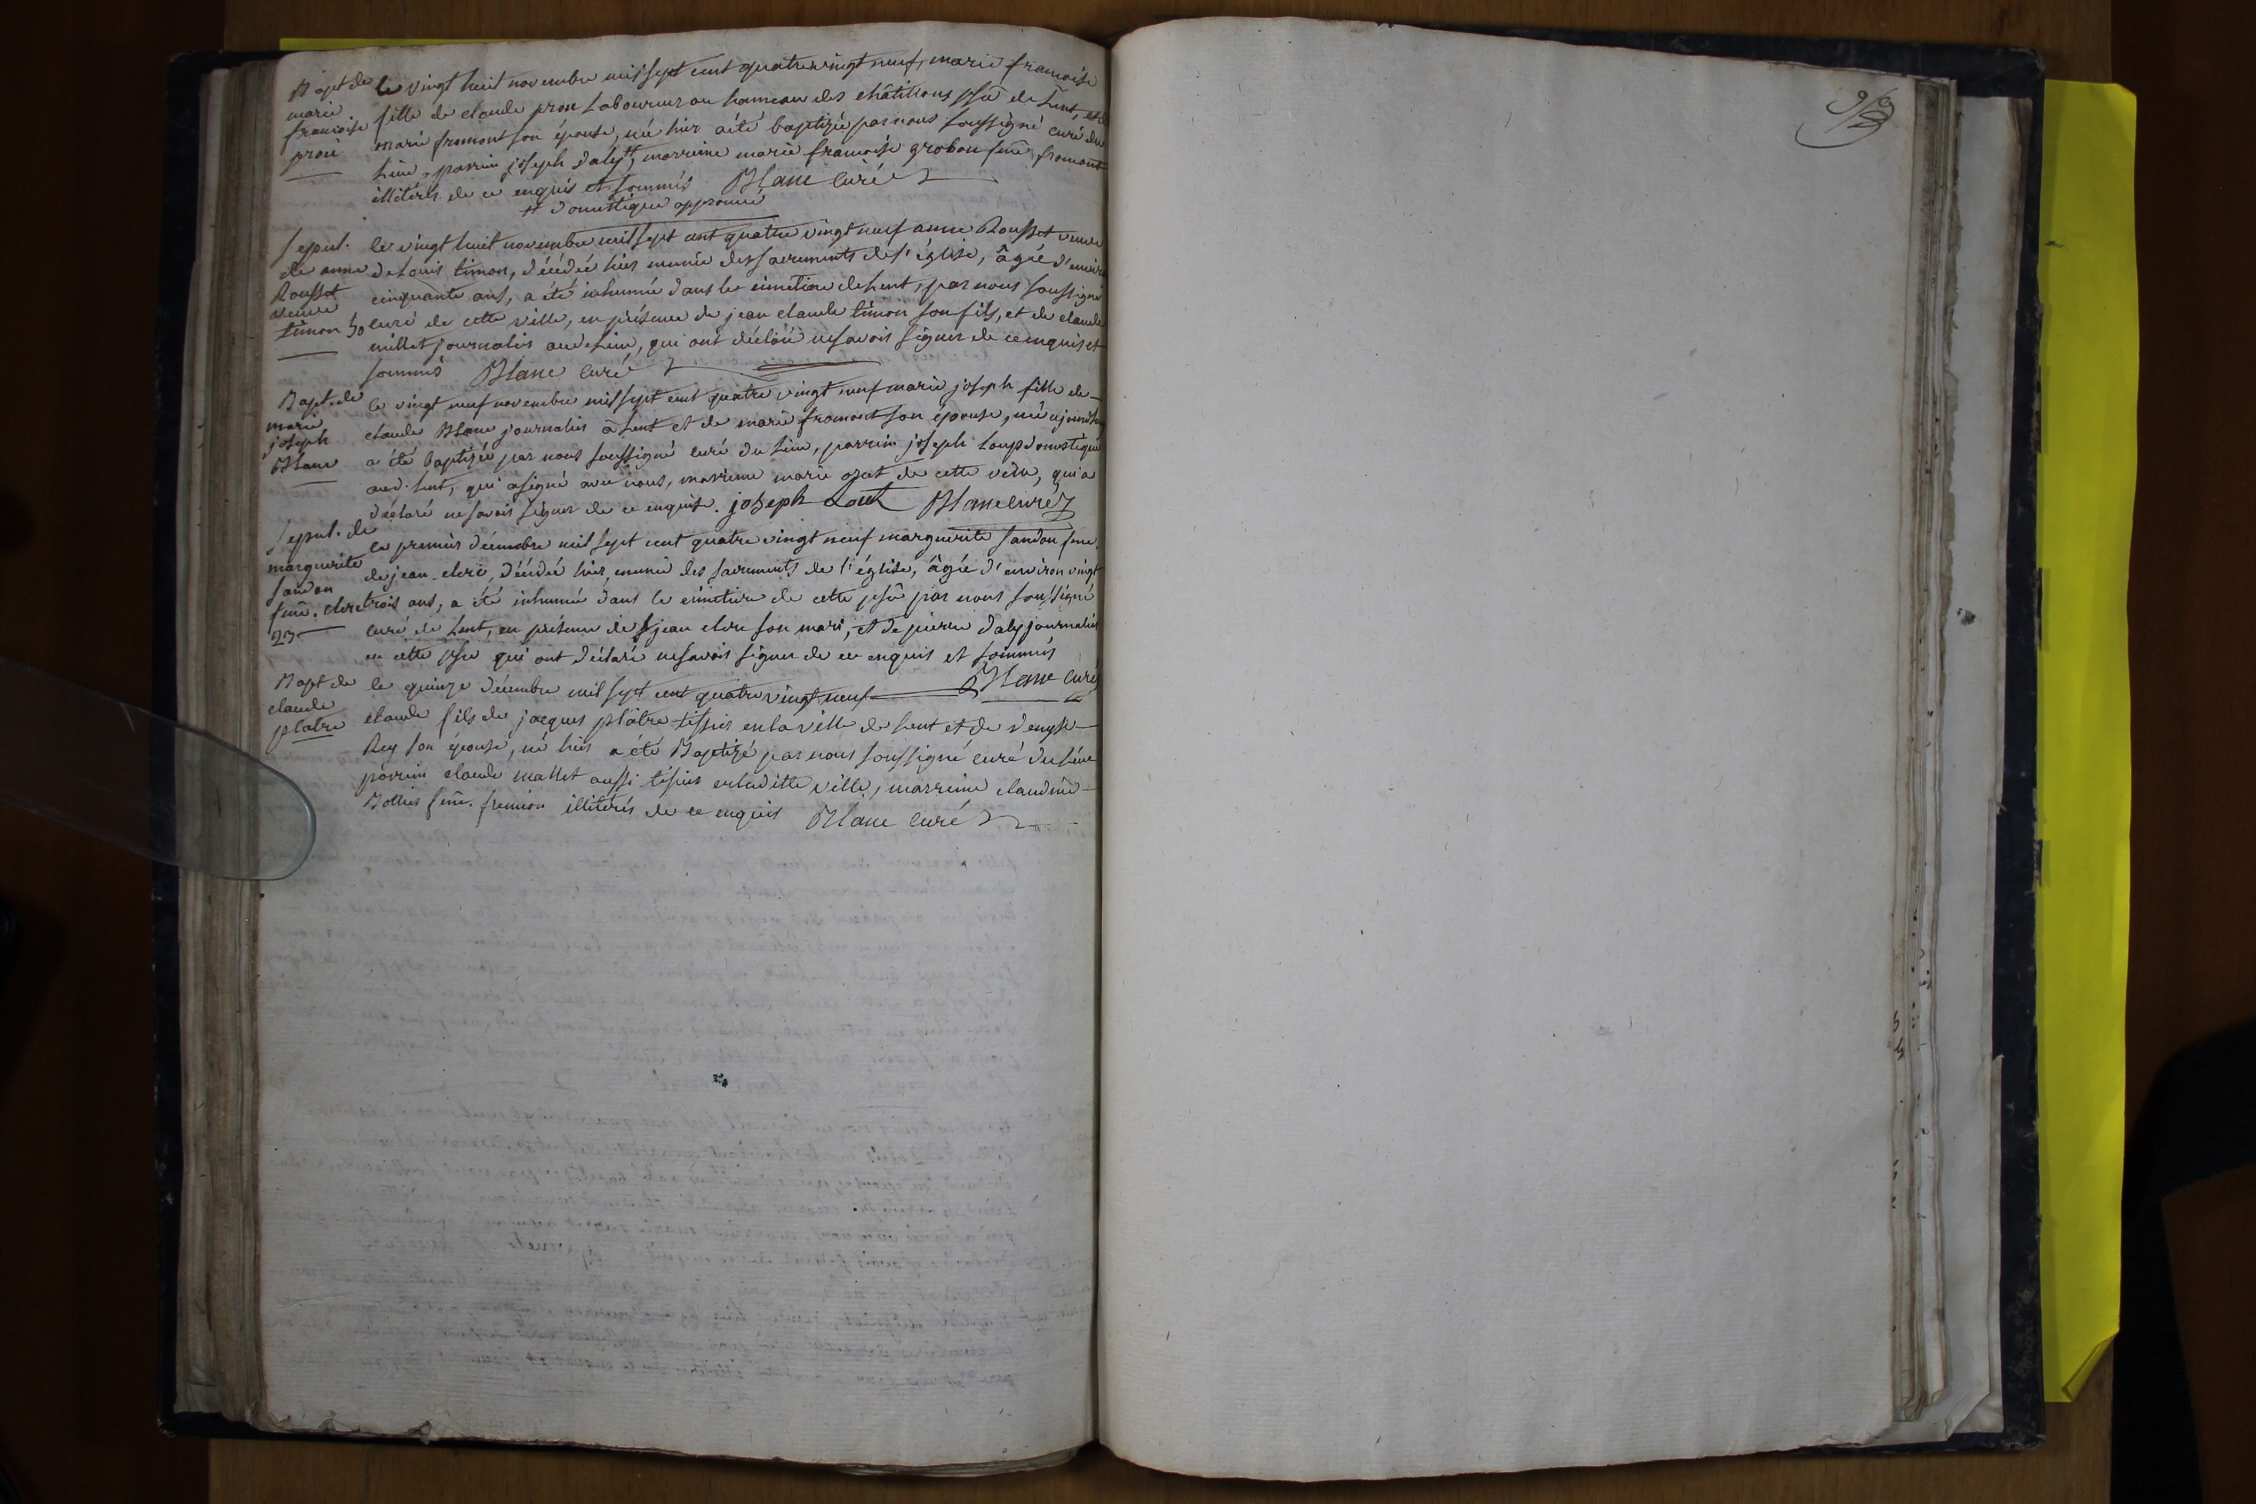 Bapt de
marie
francoise
proü
le vingt huit novembre mil sept cent quatre vingt neuf, marie francoise
fille de claude prou laboureur au hameau des châtillons psse de Lent, et de
marie fromont son épouse, née hier a été baptizée par nous soussigné curé du
Lieu, parrin joseph daly #, marreine marie francoise grobon feme fromont
illitérés de ce enquis et sommés Blanc Curé
# domestique
Sepul.
de anne
Rousset
veuve
timon 50
le vingt huit novembre mil sept cent quatre vingt neuf anne Rousset veuve
de Louis timon, décédée hier munie des sacrements de l'église, âgée d'environ
cinquante ans, a été inhumée dans le cimetiere de Lent, par nous soussigné
curé de cette ville, en présence de jean claude timon son fils, et de claude
millet journalier aud. Lieu, qui ont déclaré ne savoir signer de ce enquis et
sommés Blanc Curé
Bapt. de
marie
joseph
Blanc
le vingt neuf novembre mil sept cent quatre vingt neuf marie joseph fille de
claude Blanc journalier à Lent et de marie fromont son épouse, née ajourdhuy
a été baptizée par nous soussigné curé du Lieu, parrin joseph Loup domestique
aud. Lent, qui a signé avec nous, marreine marie de cette ville, qui a
déclaré ne savoir signer de ce enquise. joseph Lout Blanc curé
Sepul. de
marguerite
sandon
feme. clere
23
le premier décembre mil sept cent quatre vingt neuf marguerite sandon feme
de jean clere, décédée hier, munie des sacrements de l'église, âgée d'environ vingt
trois ans, a été inhumée dans le cimetiere de cette psse par nous soussigné
curé de Lent, en présence de jean clere son mari, et de pierre daly journalier
en cette psse qui ont déclaré ne savoir signer de ce enquis et sommés
Blanc Curé
Bapt de
claude
platre
le quinze décembre mil sept cent quatre vingt neuf
claude fils de jacques plâtre tissier en la ville de Lent et de denyse
Rey son épouse, né hier a été Baptizé par nous soussigné curé du Lieu
parrin claude mallet aussi tissier en laditte ville, marreine claudine
feme. illitérés de ce enquis Blanc Curé